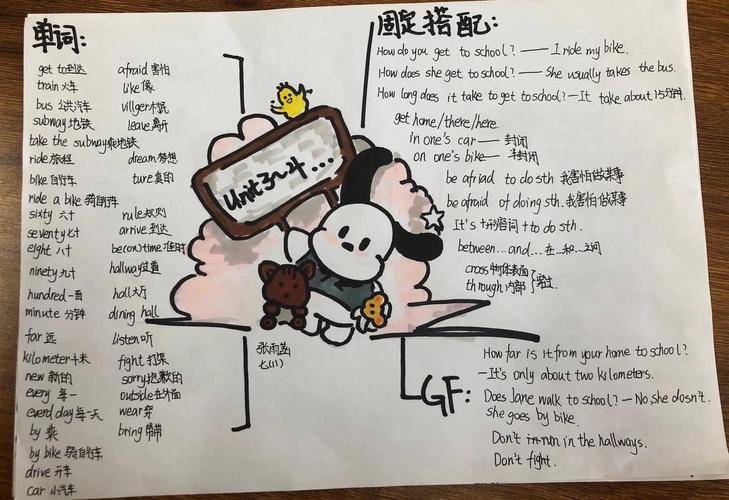 单词:
get to到达
train 火车
bus 公共汽车
subway 地铁
take the subway乘地铁
ride 旅程
bike 自行车
ride a bike 骑自行车
sixty 六十
seventy 七十
eight 八十
ninety 九十
hundred 一百
minute 分钟
far 远
kilometer 千米
new 新的
every 每一
everd day 每一天
by 乘
by bike 骑自行车
drive 开车
car 小汽车
afraid 害怕
like 像
villger 村民
leave 离开
dream 梦想
ture 真的
rule 规则
arrive 到达
be(on)time 准时
hallway 过道
hall 大厅
dining hall
listen 听
fight 打架
sorry 抱歉的
outside 在外面
wear 穿
bring 带
Unit 3~4 ...
张雨菡
七(11)
固定搭配:
How do you get to school? —— I ride my bike.
How does she get to school? —— She usually takes the bus.
How long does it take to get to school? — It take about 15分钟.
get home/there/here
in one's car —— 封闭
on one's bike —— 半封闭
be afriad to do sth 我害怕做某事
be afraid of doing sth 我害怕做某事
It's +形容词 + to do sth.
between...and... 在...和...之间
cross 物体表面
through 内部 穿过.
GF:
How far is it from your home to school?
—It's only about two kilometers.
Does Jane walk to school? — No, she dosn't.
she goes by bike.
Don't run in the hallways.
Don't fight.